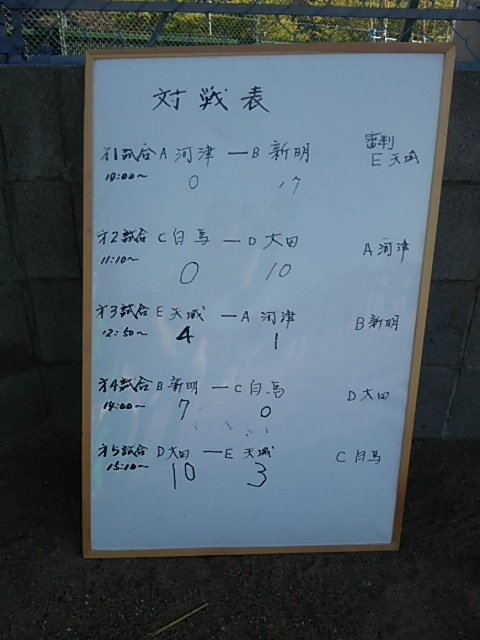 対戦表
審判
才1試合 A 河津 ー B 新明 E 天城
10:00〜 0 17
才2試合 C 白馬 ー D 大田 A 河津
11:10〜 0 10
才3試合 E 天城 ー A 河津 B 新明
12:50〜 4 1
才4試合 B 新明 ー C 白馬 D 大田
14:00〜 7 0
才5試合 D 大田 ー E 天城 C 白馬
15:10〜 10 3